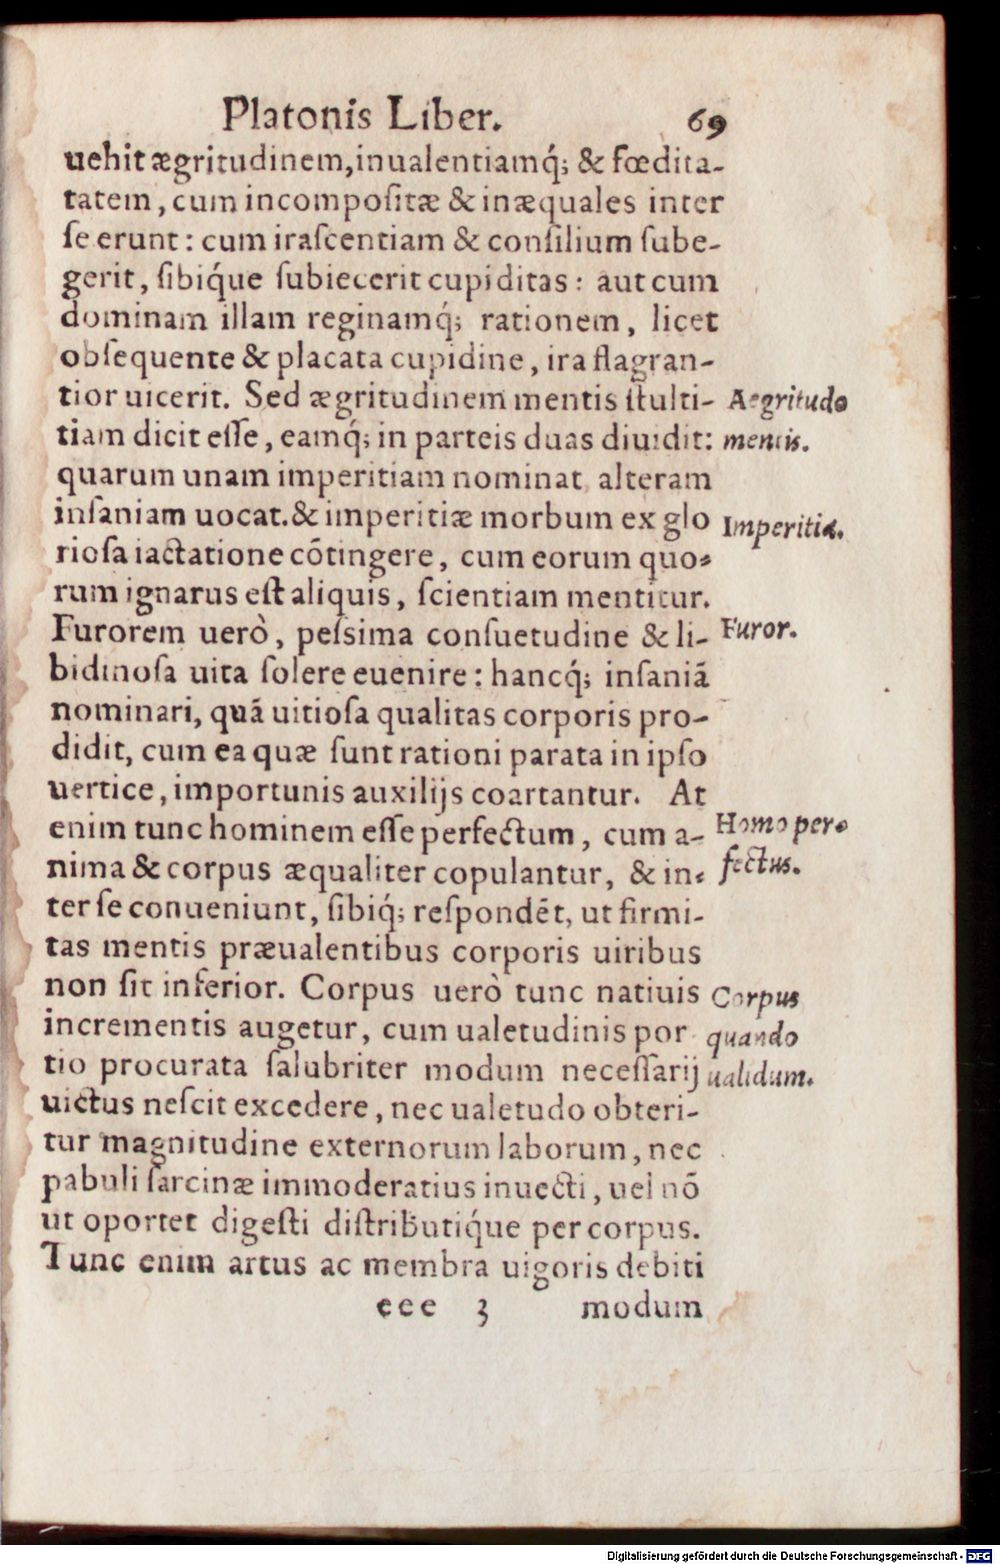 Platonis Liber. 69
uehit ægritudinem, inualentiamq́; & fœdita-
tatem, cum incompoſitæ & inæquales inter
ſe erunt: cum iraſcentiam & conſilium ſube-
gerit, ſibiq́ue ſubiecerit cupiditas: aut cum
dominam illam reginamq́; rationem, licet
obſequente & placata cupidine, ira flagran-
tior uicerit. Sed ægritudinem mentis ſtulti-
Aegritudo
tiam dicit eſſe, eamq́; in parteis duas diuidit:
mentis.
quarum unam imperitiam nominat alteram
inſaniam uocat. & imperitiæ morbum ex glo
Imperitia.
rioſa iactatione cõtingere, cum eorum quo-
rum ignarus eſt aliquis, ſcientiam mentitur.
Furorem uerò, peſsima conſuetudine & li-
Furor.
bidinoſa uita ſolere euenire: hancq́; inſaniã
nominari, quã uitioſa qualitas corporis pro-
didit, cum ea quæ ſunt rationi parata in ipſo
uertice, importunis auxilijs coartantur. At
enim tunc hominem eſſe perfectum, cum a-
Homo per-
nima & corpus æqualiter copulantur, & in-
fectus.
ter ſe conueniunt, ſibiq́; reſpondẽt, ut firmi-
tas mentis præualentibus corporis uiribus
non ſit inferior. Corpus uerò tunc natiuis
Corpus
incrementis augetur, cum ualetudinis por
quando
tio procurata ſalubriter modum neceſſarij
ualidum.
uictus neſcit excedere, nec ualetudo obteri-
tur magnitudine externorum laborum, nec
pabuli ſarcinæ immoderatius inuecti, uel nõ
ut oportet digeſti diſtributiq́ue per corpus.
Tunc enim artus ac membra uigoris debiti
eee 3 modum
Digitalisierung gefördert durch die Deutsche Forschungsgemeinschaft - DFG